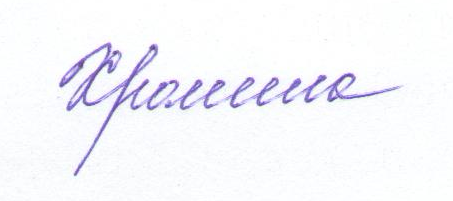 Хромина